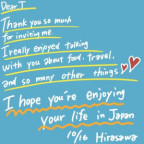 Dear T
Thank you so much
for inviting me.
I really enjoyed talking
with you about food, travel,
and so many other things
I hope you're enjoying
your life in Japan
10/16 Hirasawa